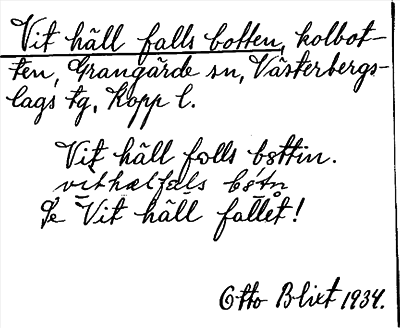 Vit häll falls botten, kolbot-
ten, Grangärde sn, Västerbergs-
lags tg, Kopp l.
Vit häll folls bottin.
vithælfals botn
Se Vit häll fallet!
Otto Blixt 1934.